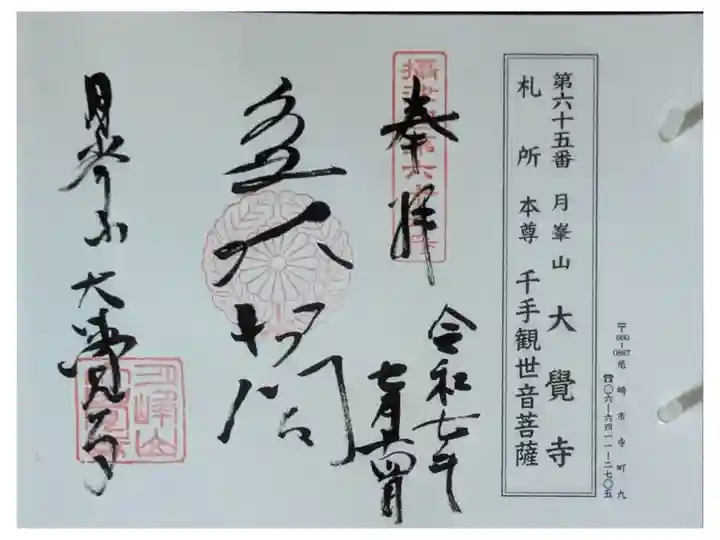 〒660-0867 尼崎市寺町九
☎〇六-六四一一-二七〇五
第六十五番 月峯山 大覺寺
札所 本尊 千手観世音菩薩
奉拝
令和七年
七月十四日
月峯山 大覺寺
月峰山